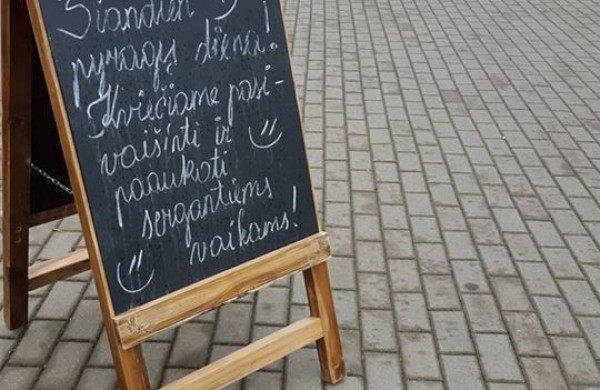 Šiandien
pyragų diena!
Kviečiame pasi-
vaišinti ir
paaukoti
sergantiems
vaikams!